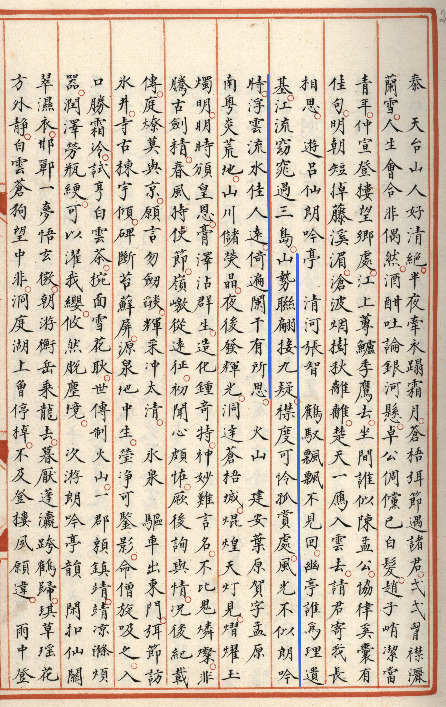 泰　天台山人好清絕半夜牽衣蹋霜月蒼梧弭節遇諸君弍弍習襟濂
蘭雪人生會合非偶然酒酣吐論銀河懸卓公倜儻已白髮趙子峭潔當
青年仲宣登樓望鄉處江上蓴鱸季鷹去坐間誰似陳孟公協律奚囊有
佳句明朝短掉藤溪湄滄波烟樹秋離離楚天一鴈入雲去請君寄我長
相思　遊呂仙朗吟亭　清河張智　鶴馭飄飄不見回幽亭誰為理遺
基江流窈窕過三島山勢聯翩接九疑襟度可怜孤賞處風光不似朗吟
時浮雲流水佳人遠倚遍闌干有所思　火山　建安葉原賀字孟原
南粵炎荒地山川儲榮晶夜後發輝光洞達蒼梧城焜煌天灯見熠耀玉
燭明明時頒皇恩膏澤沾群生造化鍾奇特神妙難言名不比思燐爍非
騰古劍精春風持使節嶺嶠從遠征初聞心頗恠厥後詢輿情況後紀載
傳庭燎莫與京願言勿劒輝采冲太清　氷泉　驅車出東門弭節訪
氷井寺古棟宇傾碑斷苔蘚屏源泉地中生瑩淨可鑒影命僧旋吸之入
口勝霜冷試烹白雲茶捥面雪花耿世傳制火山一郡頼鎮靖靖凉滌煩
噐潤澤勞瓶綆可以濯我纓攸然脫塵境　次游朗吟亭韻　閑扣仙関
翠濕衣邯鄲一夢悟玄微朝游衡岳乗龍去暮厭蓬瀛跨鶴歸琪草瑶花
方外静白雲蒼狗望中非洞庭湖上曾停掉不及登樓風願違　雨中登